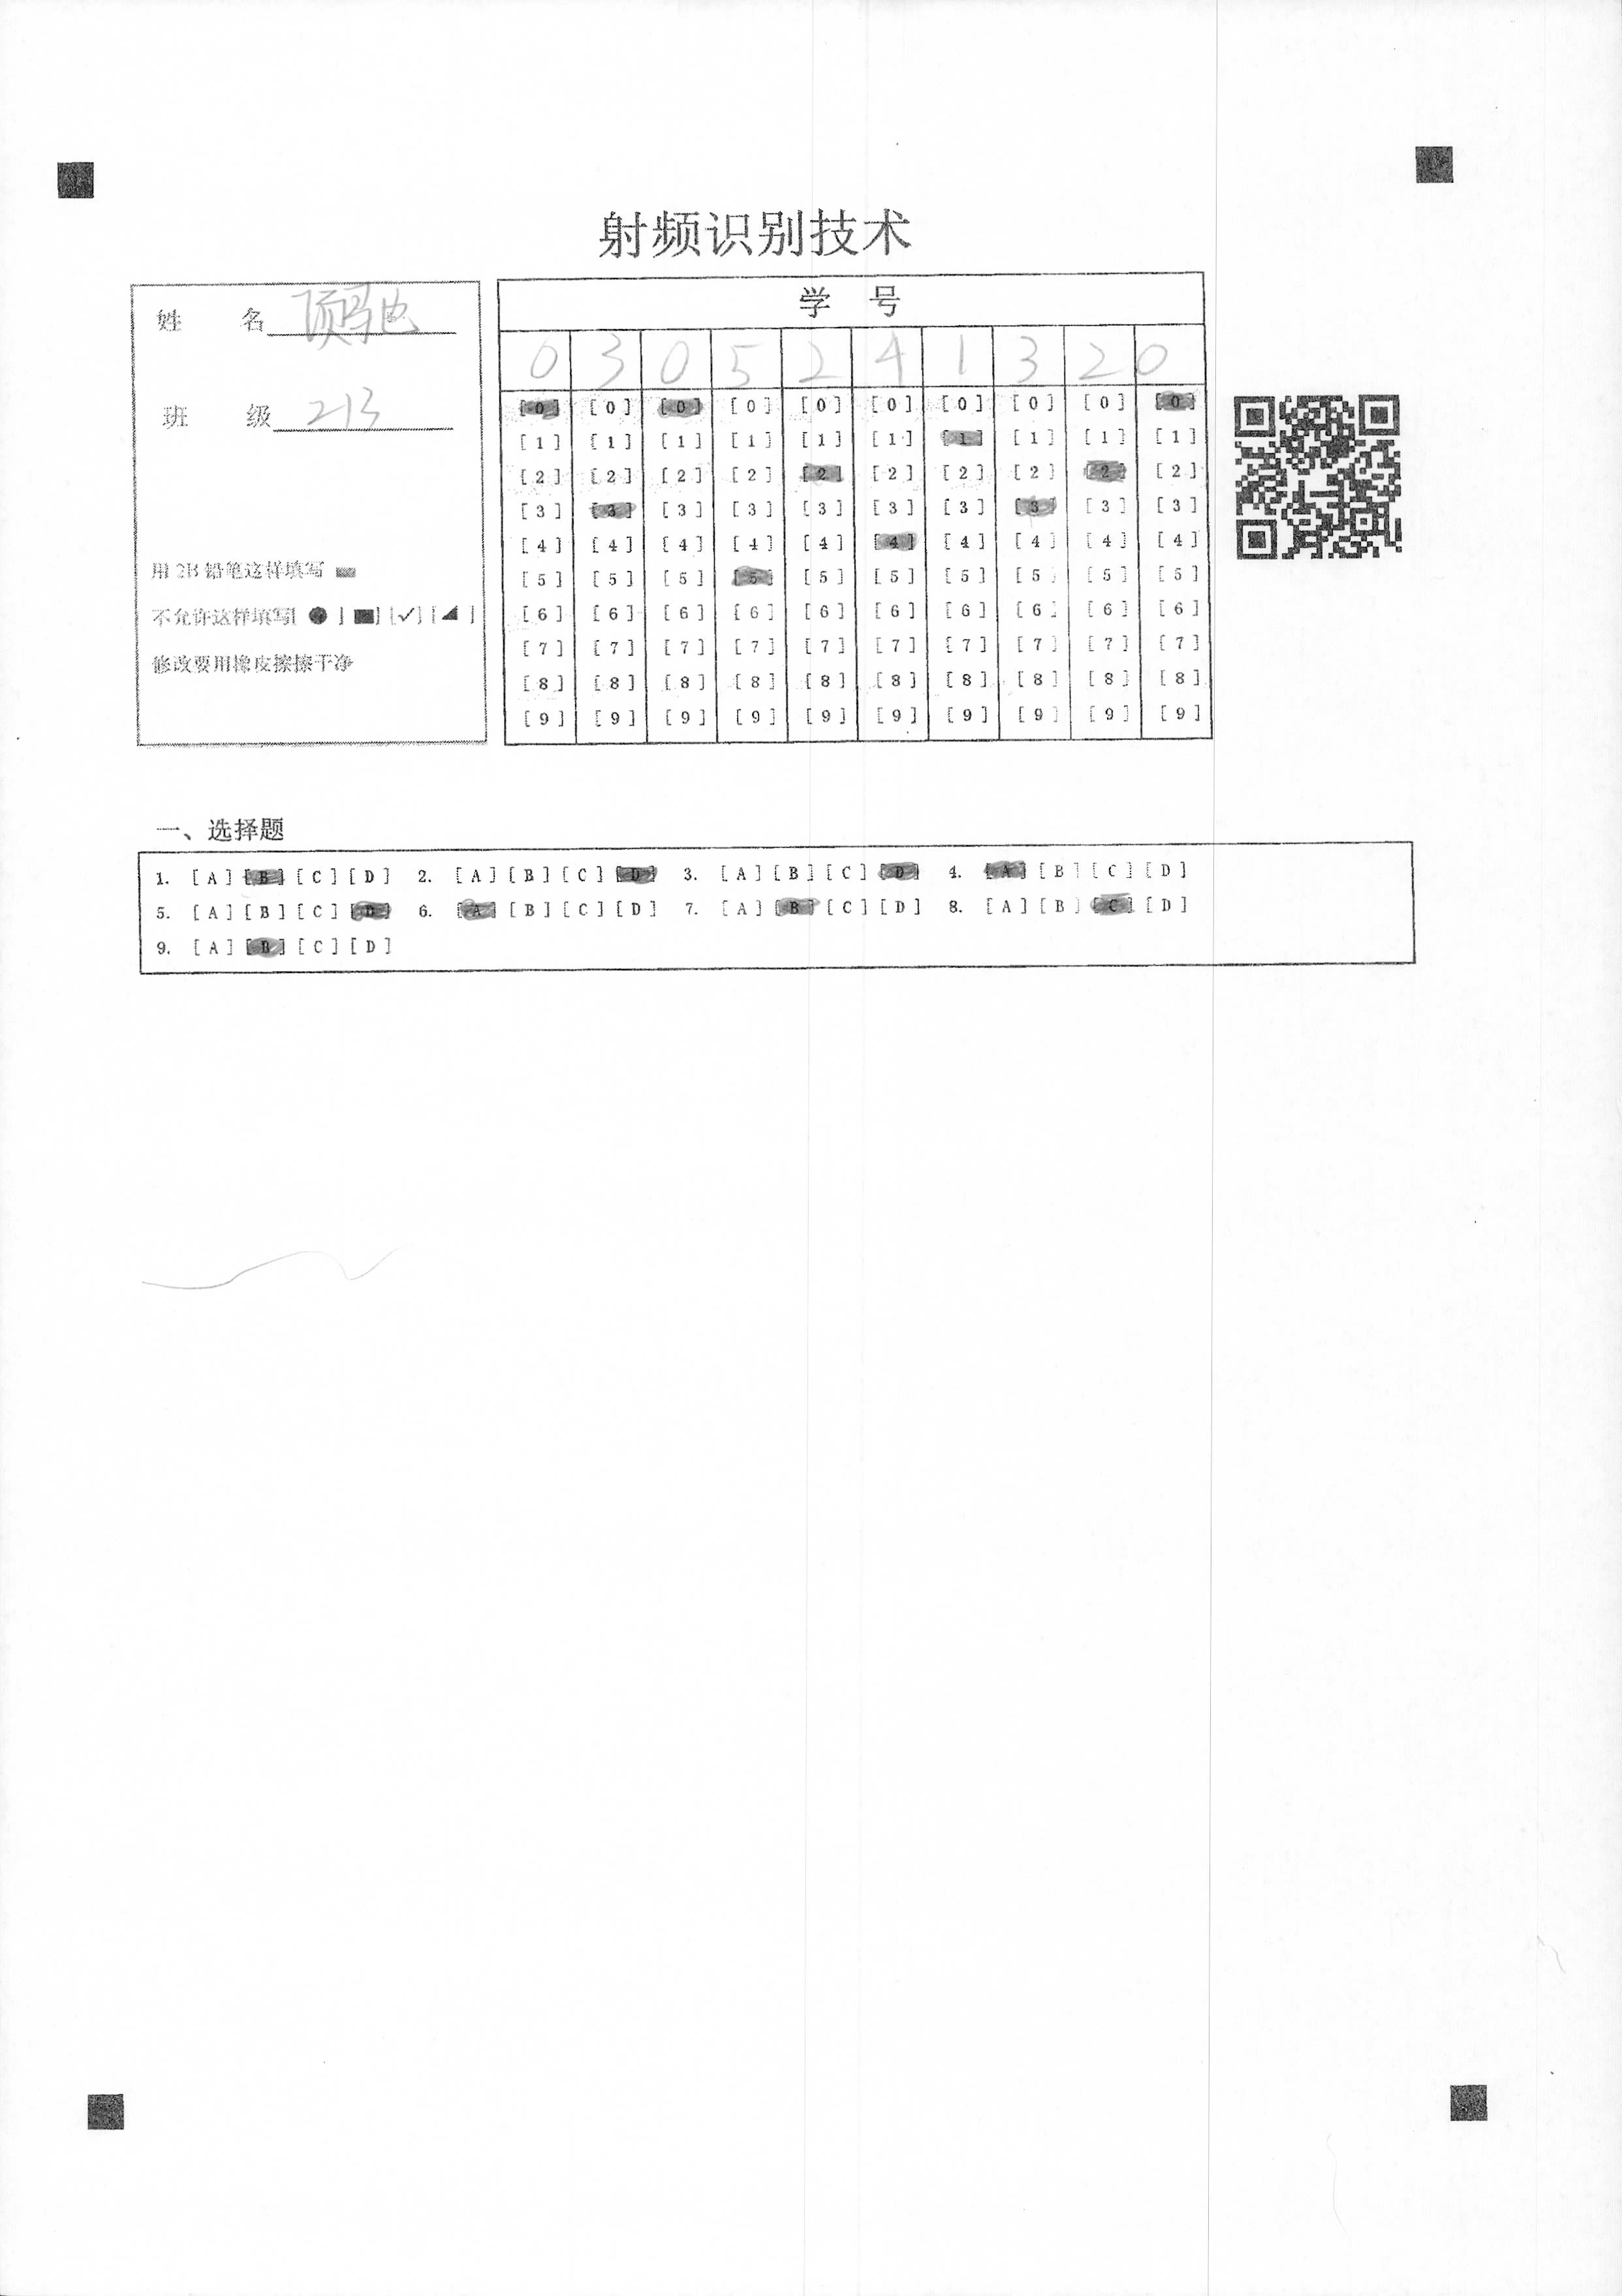 射频识别技术
姓 名
班 级 213
用 2B 铅笔这样填写
不允许这样填写[ ● ] [■] [✓] [◢ ]
修改要用橡皮擦擦干净
学 号
0 3 0 5 2 4 1 3 2 0
[0] [0] [0] [0] [0] [0] [0] [0] [0] [0]
[1] [1] [1] [1] [1] [1] [1] [1] [1] [1]
[2] [2] [2] [2] [2] [2] [2] [2] [2] [2]
[3] [3] [3] [3] [3] [3] [3] [3] [3] [3]
[4] [4] [4] [4] [4] [4] [4] [4] [4] [4]
[5] [5] [5] [5] [5] [5] [5] [5] [5] [5]
[6] [6] [6] [6] [6] [6] [6] [6] [6] [6]
[7] [7] [7] [7] [7] [7] [7] [7] [7] [7]
[8] [8] [8] [8] [8] [8] [8] [8] [8] [8]
[9] [9] [9] [9] [9] [9] [9] [9] [9] [9]
一、选择题
1. [A] [B] [C] [D] 2. [A] [B] [C] [D] 3. [A] [B] [C] [D] 4. [A] [B] [C] [D]
5. [A] [B] [C] [D] 6. [A] [B] [C] [D] 7. [A] [B] [C] [D] 8. [A] [B] [C] [D]
9. [A] [B] [C] [D]